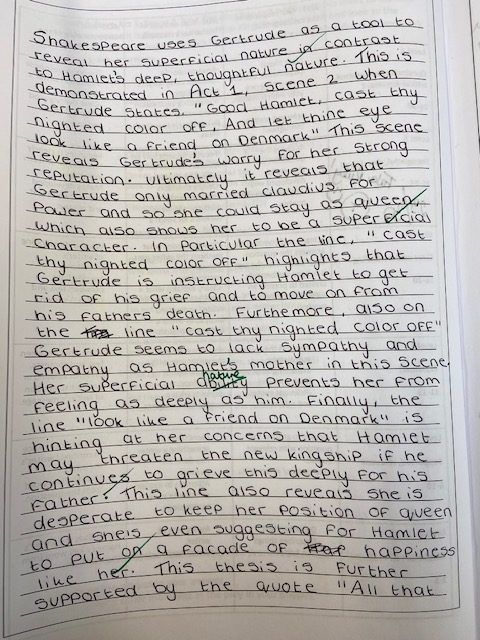 Shakespeare uses Gertrude as a tool to
reveal her superficial nature in contrast
to Hamlet's deep, thoughtful nature. This is
demonstrated in Act 1, scene 2 when
Gertrude states, "Good Hamlet, cast thy
nighted color off, And let thine eye
look like a friend on Denmark" This scene
reveals Gertrude's worry for her strong
reputation. Ultimately it reveals that
Gertrude only married claudius for
Power and so she could stay as queen,
which also shows her to be a superficial
character. In Particular the line, "cast
thy nighted color off" highlights that
Gertrude is instructing Hamlet to get
rid of his grief and to move on from
his fathers death. Furthemore, also on
the line "cast thy nighted color off"
Gertrude seems to lack sympathy and
empathy as Hamlet's mother in this scene.
Her superficial nature prevents her from
feeling as deeply as him. Finally, the
line "look like a friend on Denmark" is
hinting at her concerns that Hamlet
may threaten the new kingship if he
continues to grieve this deeply for his
father. This line also reveals she is
desperate to keep her position of queen
and she is even suggesting for Hamlet
to put on a facade of happiness
like her. This thesis is further
supported by the quote "All that